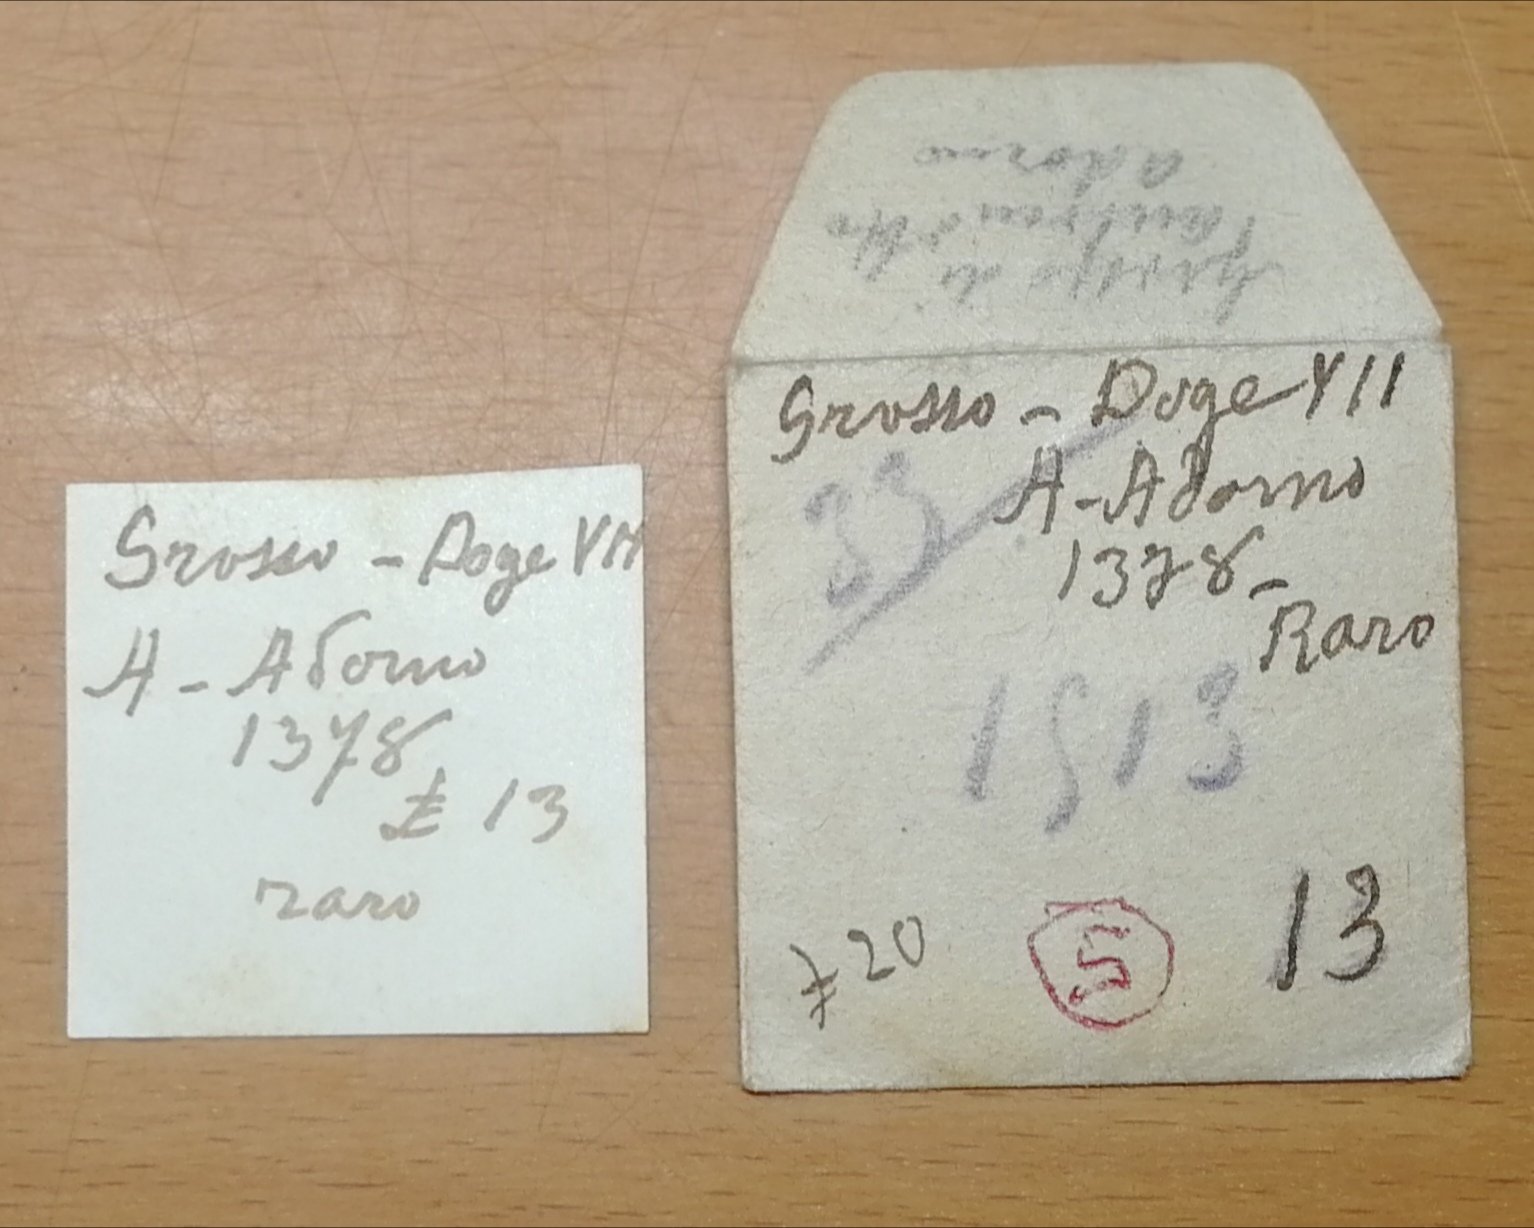 Grosso - Doge VII
A - Adorno
1378
£ 13
raro
adorno
Grosso - Doge VII
33
A - Adorno
1378 -
Raro
1913
13
£ 20
S